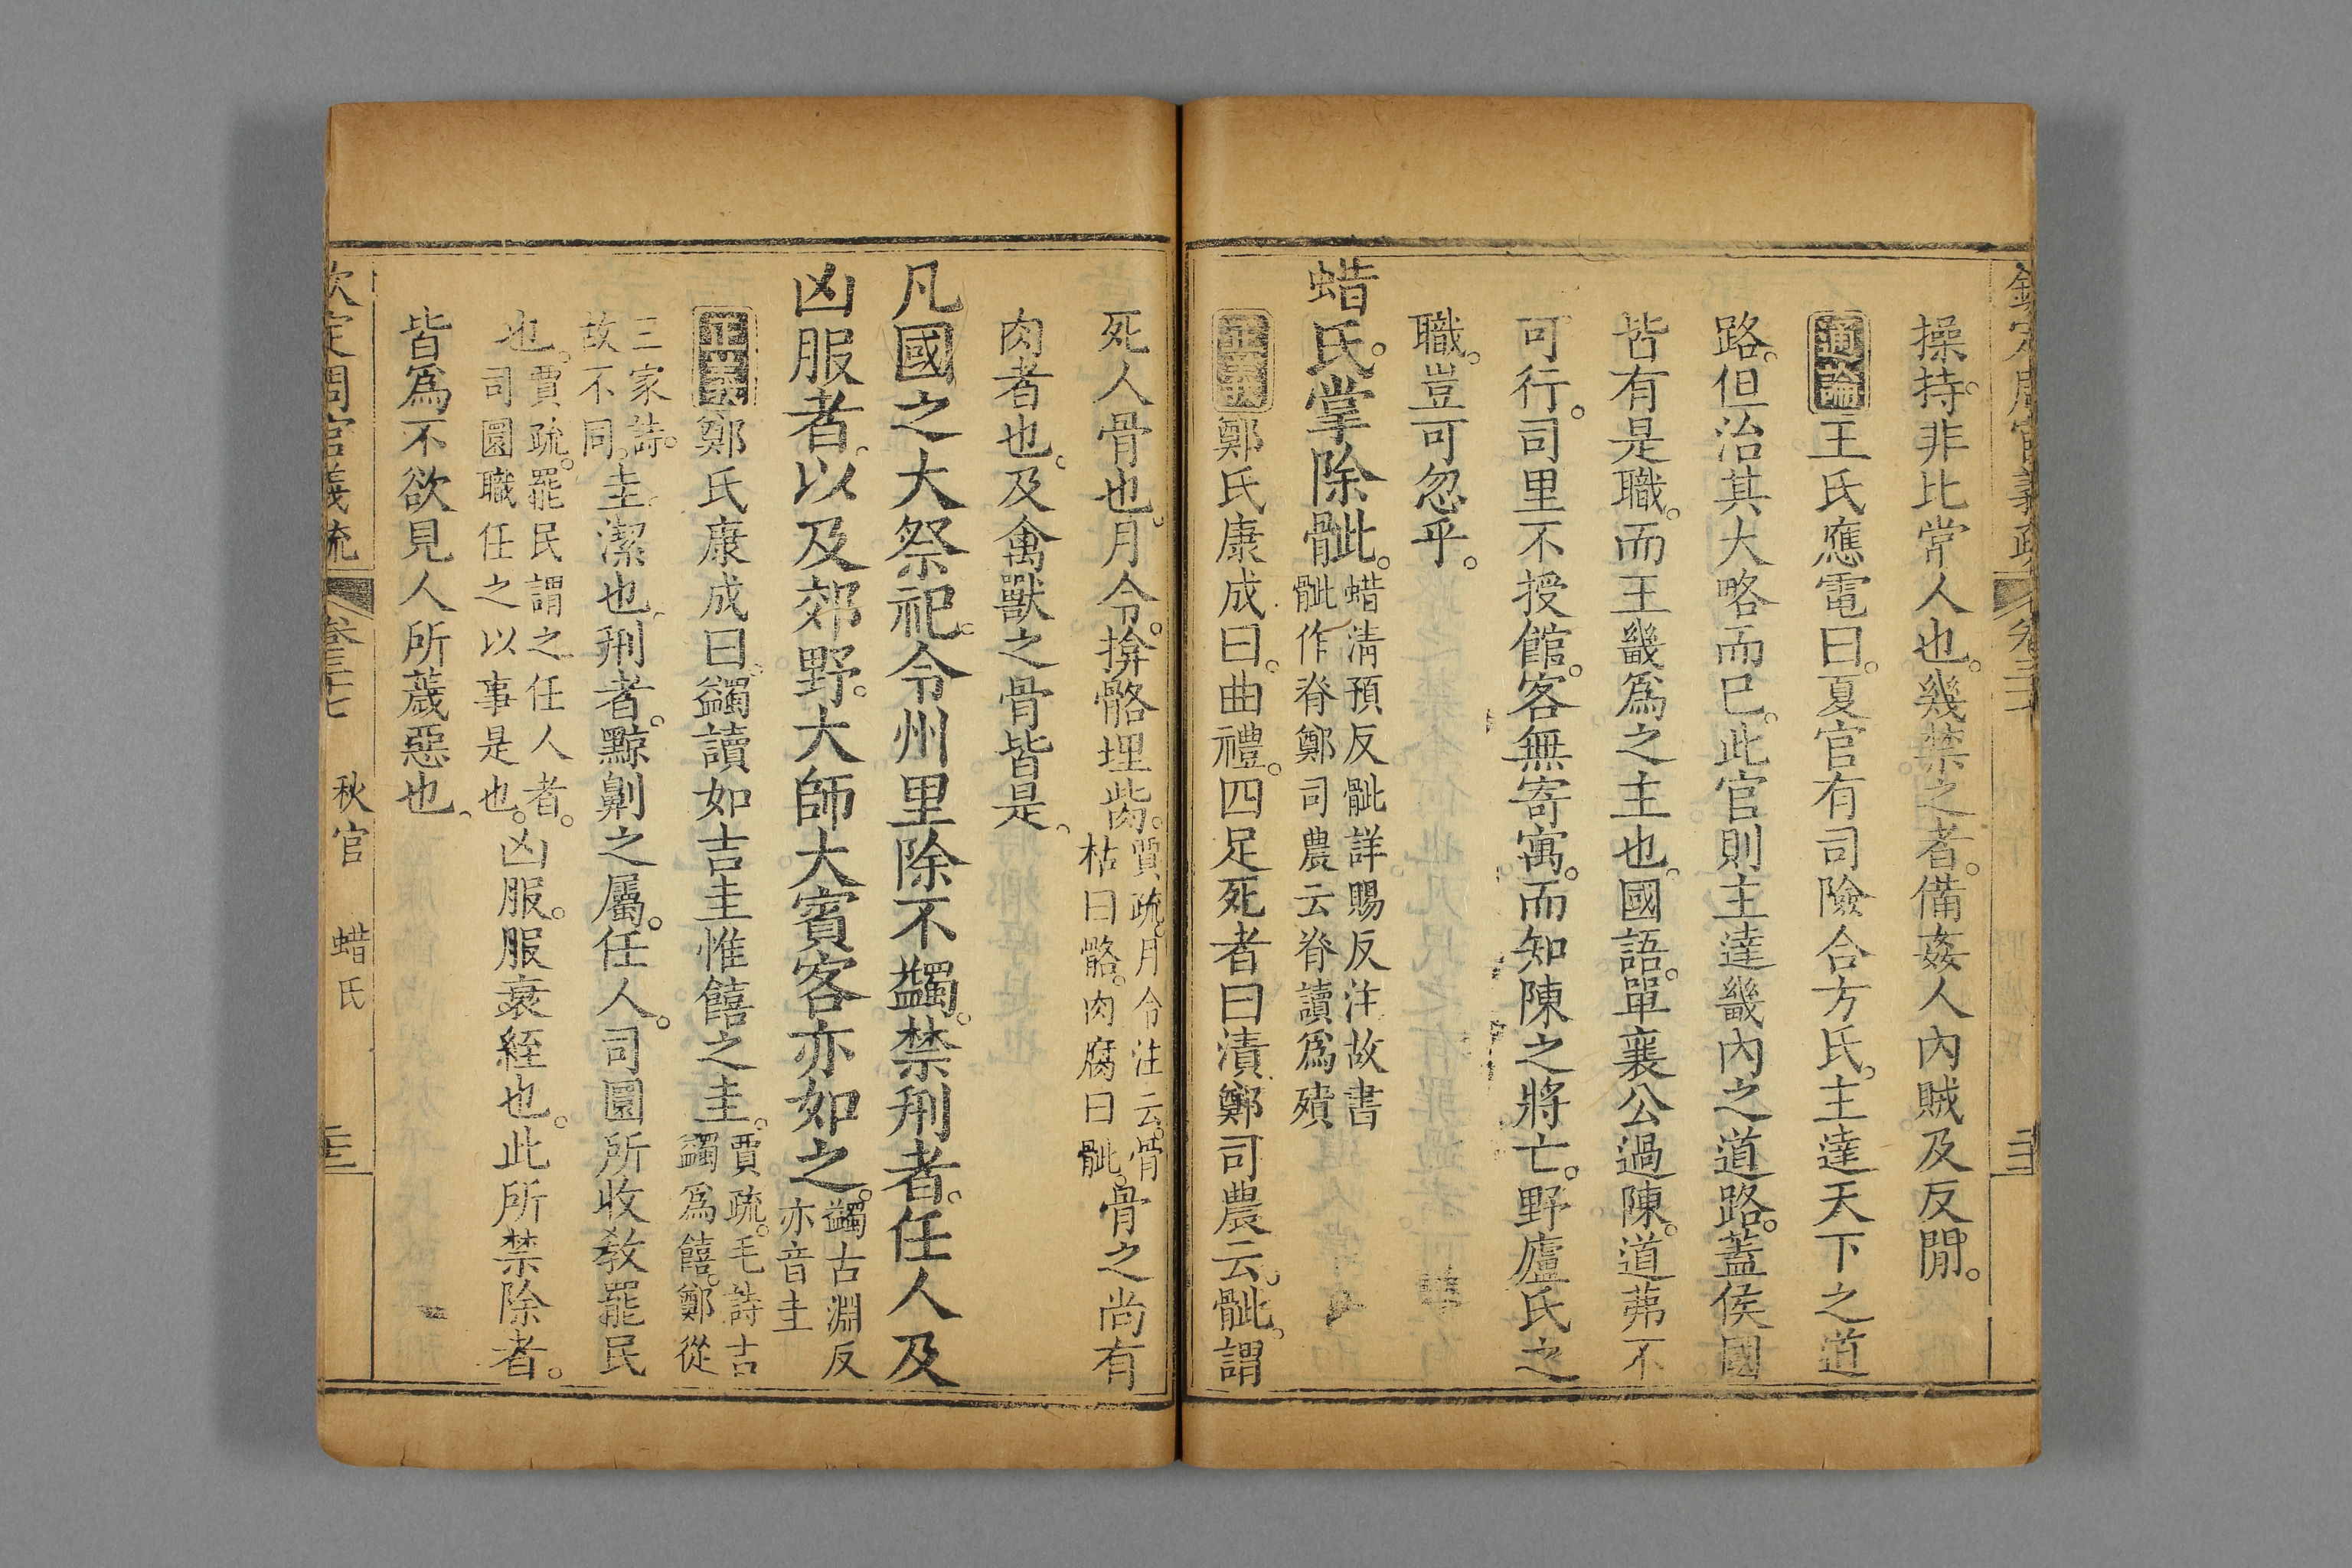 操持。非比常人也。幾禁之者。備姦人內賊及反間。
通論王氏應電曰。夏官有司險合方氏。主達天下之道
路。但治其大略而已。此官則主達畿內之道路。蓋侯國
皆有是職。而王畿爲之主也。國語。單襄公過陳。道茀不
可行。司里不授館。客無寄寓。而知陳之將亡。野廬氏之
職。豈可忽乎。
蜡氏。掌除骴。蜡淸預反骴詳賜反注故書
骴作脊鄭司農云脊讀爲殨
正義鄭氏康成曰。曲禮。四足死者曰漬鄭司農云。骴。謂
死人骨也。月令。掩骼埋胔。賈疏。月令注云。骨
枯曰骼。肉腐曰骴。骨之尚有
肉者也。及禽獸之骨皆是。
凡國之大祭祀。令州里除不蠲。禁刑者。任人及
凶服者。以及郊野。大師大賓客亦如之。蠲古淵反
亦音圭
正義鄭氏康成曰。蠲讀如吉圭惟饎之圭。賈疏。毛詩吉
蠲爲饎。鄭從
三家詩。
故不同。圭潔也。刑者。黥劓之屬。任人。司圜所收敎罷民
也。賈疏。罷民謂之任人者。
司圜職任之以事是也。凶服。服衰絰也。此所禁除者。
皆爲不欲見人所薉惡也。
卷三十七
秋官
蜡氏